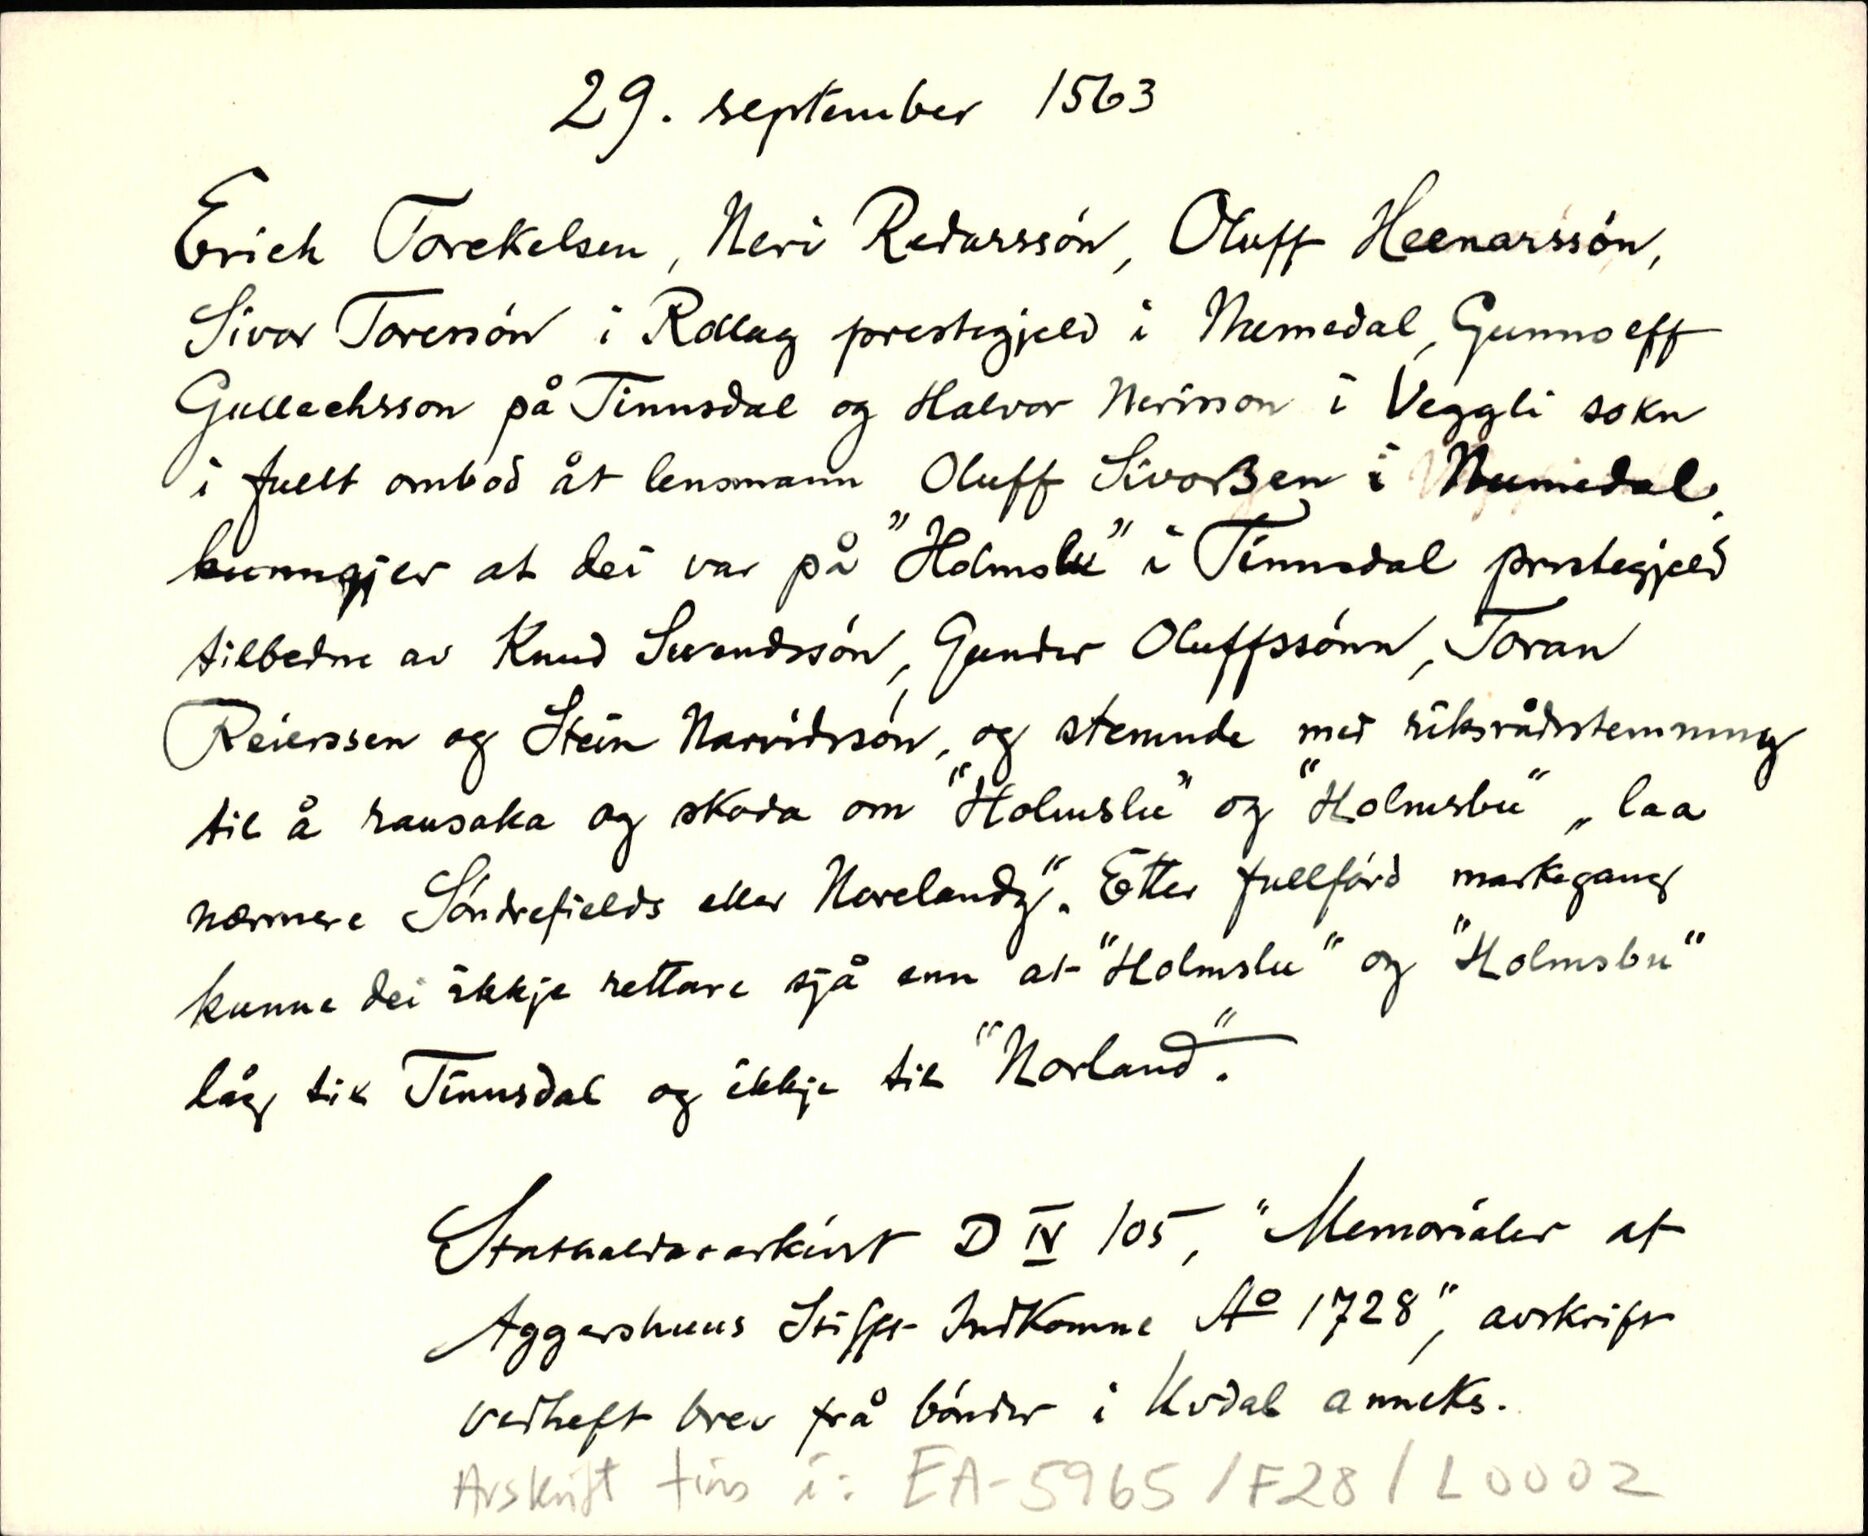 29. september 1563
Erich Torekelsen, Neri Redarssön, Oluff Heenarssön,
Sivor Toressön i Rollag prestegjeld i Numedal, Gunnoleff
Gulleechsson på Tinnsdal og Halvor Nerisson i Veggli sokn
i fullt ombod åt lensmann Oluff Sivorßen i Numedal,
kunngjer at dei var på "Holmslu" i Tinnsdal prestegjeld
tilbedne av Knud Svendssön, Gunder Oluffssönn, Toran
Reierssen og Stein Narvidssön, og stemnde med riksrådsstemning
til å ransaka og skoda om "Holmslu" og "Holmsbu" „laa
nærmere Söndrefields eller Norelandz". Etter fullförd markegang
kunne dei ikkje rettare sjå enn at "Holmslu" og "Holmsbu"
låg til Tinnsdal og ikkje til "Norland".
Stathaldararkivet D IV 105, "Memorialer af
Aggershuus Stifft Indkomne Aº 1728", avskrift
vedheft brev frå bönder i Uvdal anneks.
Avskrift fins i: EA-5965/F28/L0002